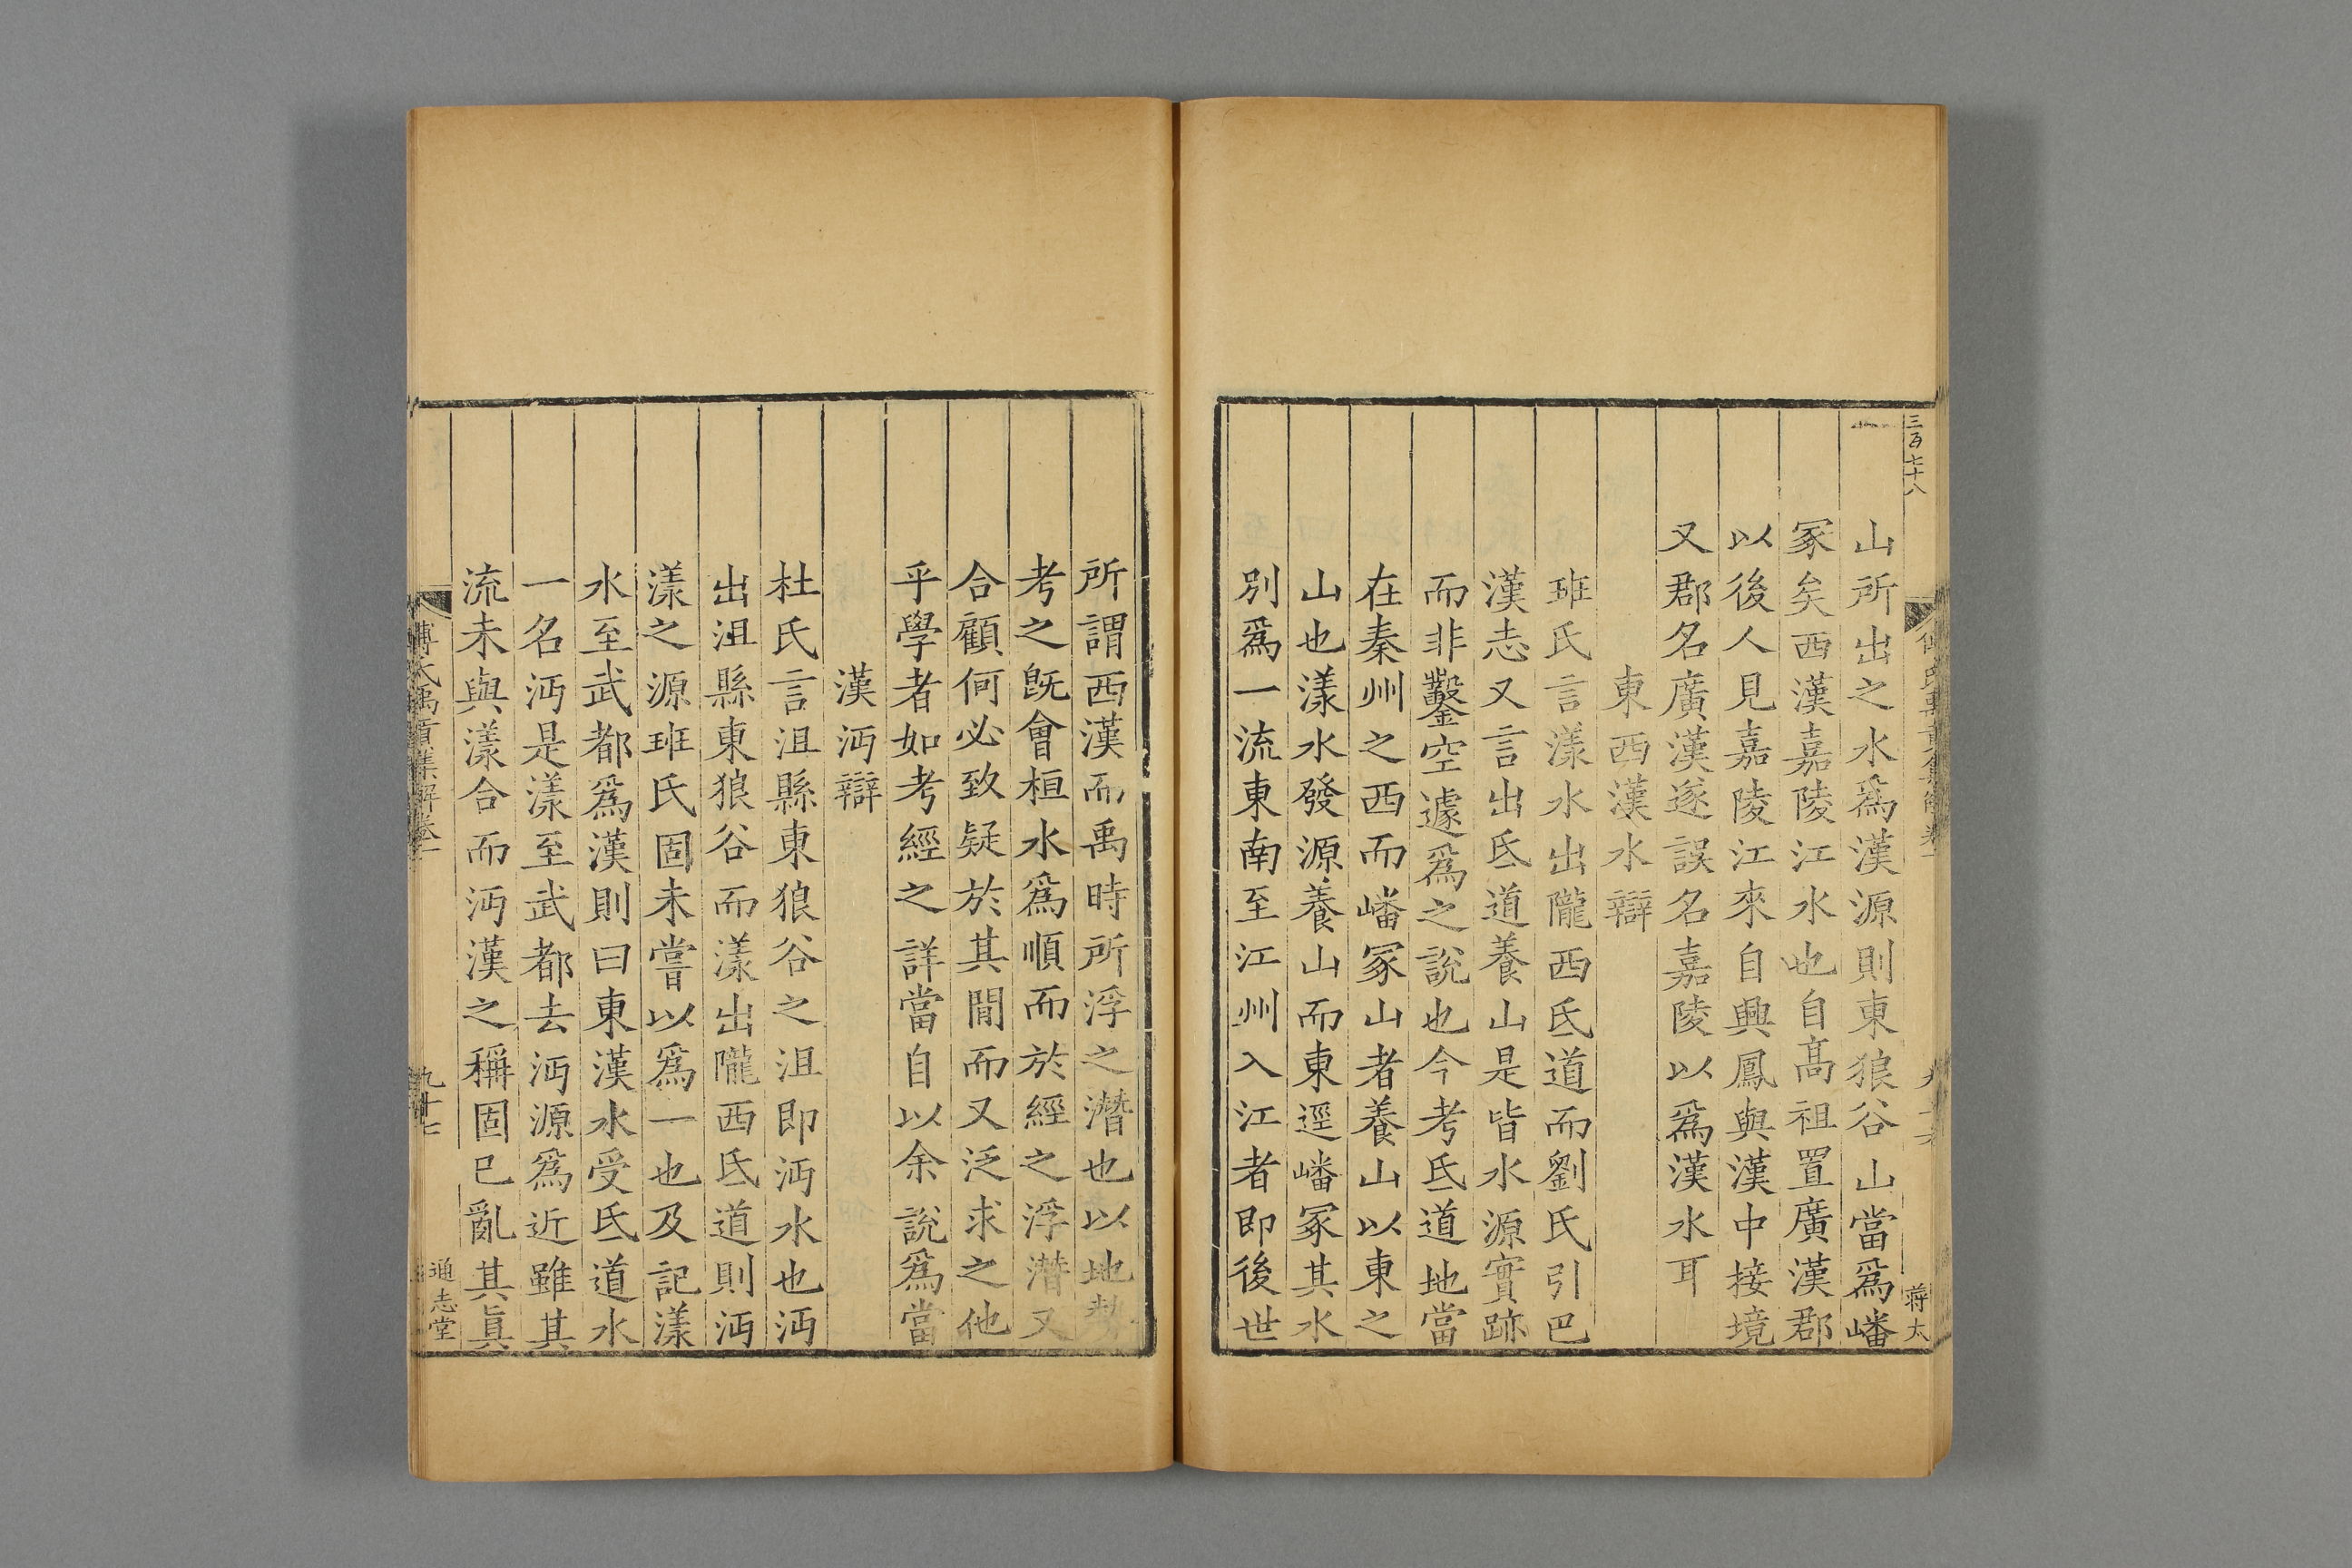 三百七十八
蒋太
山所出之水爲漢源則東狼谷山當爲嶓
冢矣西漢嘉陵江水也自高祖置廣漢郡
以後人見嘉陵江來自興鳳與漢中接境
又郡名廣漢遂誤名嘉陵以爲漢水耳
東西漢水辯
班氏言漾水出隴西氐道而劉氏引巴
漢志又言出氐道養山是皆水源實跡
而非鑿空遽爲之說也今考氐道地當
在秦州之西而嶓冢山者養山以東之
山也漾水發源養山而東逕嶓冢其水
別爲一流東南至江州入江者即後世
所謂西漢而禹時所浮之潛也以地勢
考之旣會桓水爲順而於經之浮潛又
合顧何必致疑於其間而又泛求之他
乎學者如考經之詳當自以余說爲當
漢沔辯
杜氏言沮縣東狼谷之沮即沔水也沔
出沮縣東狼谷而漾出隴西氐道則沔
漾之源班氏固未嘗以爲一也及記漾
水至武都爲漢則曰東漢水受氐道水
一名沔是漾至武都去沔源爲近雖其
流未與漾合而沔漢之稱固已亂其眞
傅氏禹貢集解卷一
九十七
通志堂